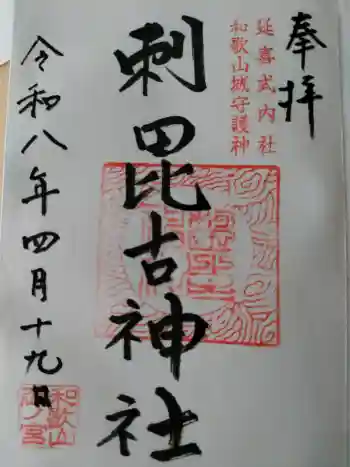 奉拝
延喜式内社
和歌山城守護神
刺毘古神社
令和八年四月十九日
和歌山